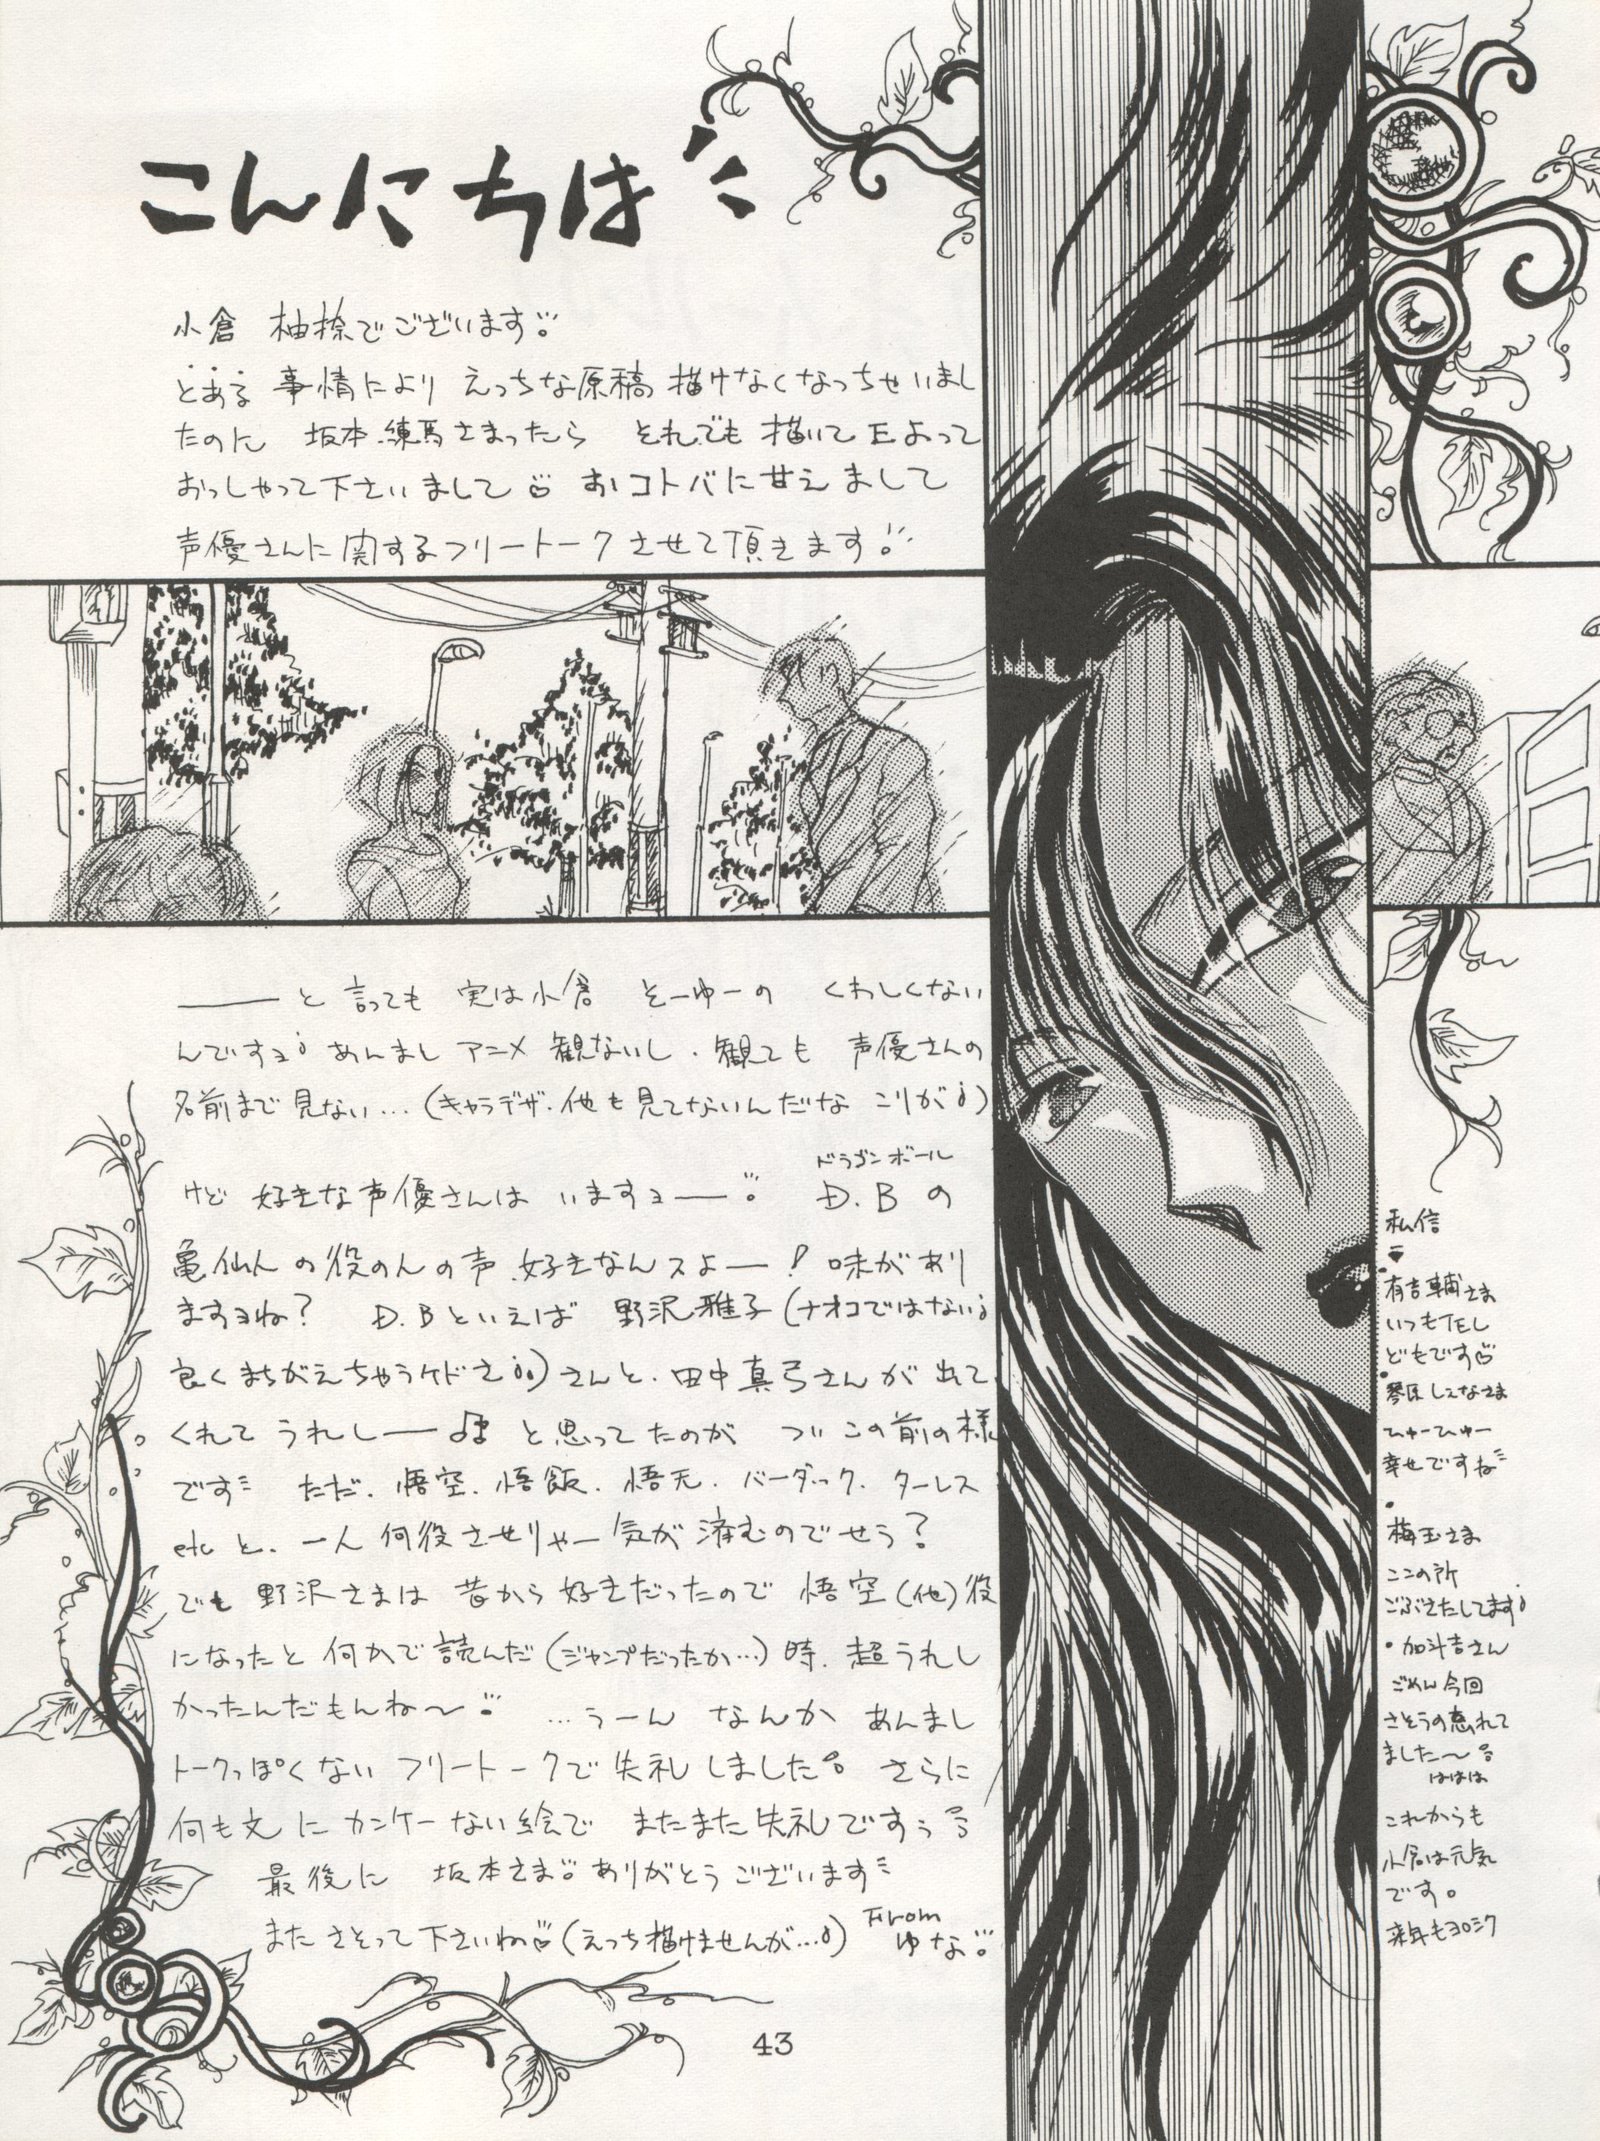 こんにちは
小倉 柚捺でございます
とある 事情により えっちな原稿 描けなくなっちゃいまし
たのに 坂本.練馬さまったら それでも 描いてEよって
おっしゃって下さいまして♡ おコトバに甘えまして
声優さんに関するフリートークさせて頂きます
――と 言っても 実は小倉 そーゆーの くわしくない
んですョ あんまし アニメ 観ないし、観ても 声優さんの
名前まで見ない…(キャラデザ.他も見てないんだな こりが)
けど 好きな声優さんは いますョー― D.Bの
ドラゴンボール
亀仙人の役のんの声、好きなんスよー―! 味があり
ますョね? D.Bといえば 野沢雅子(ナオコではない
良くまちがえちゃうケドさ)さんと、田中真弓さんが出て
くれて うれしー―♫ と思ってたのが ついこの前の様
です ただ、悟空、悟飯、悟天、バーダック、ターレス
etcと、一人 何役させりゃー気が済むのでせう?
でも 野沢さまは 昔から好きだったので 悟空(他)役
になったと 何かで読んだ(ジャンプだったか…)時、超うれし
かったんだもんね〜 …うーん なんか あんまし
トークっぽくない フリートークで失礼しました さらに
何も文にカンケーない絵で またまた失礼ですぅ
最後に 坂本さま ありがとうございます
またさそって下さいね♡(えっち描けませんが…) From
ゆな
私信
・有吉輔さま
いつもTEL
どもです♡
・琴原しえなさま
ひゅーひゅー
幸せですね
・梅玉さま
ここの所
ごぶさたしてます
・加斗吉さん
ごめん今回
さそうの忘れて
ました〜
ははは
これからも
小倉は元気
です。
来年もヨロシク
43